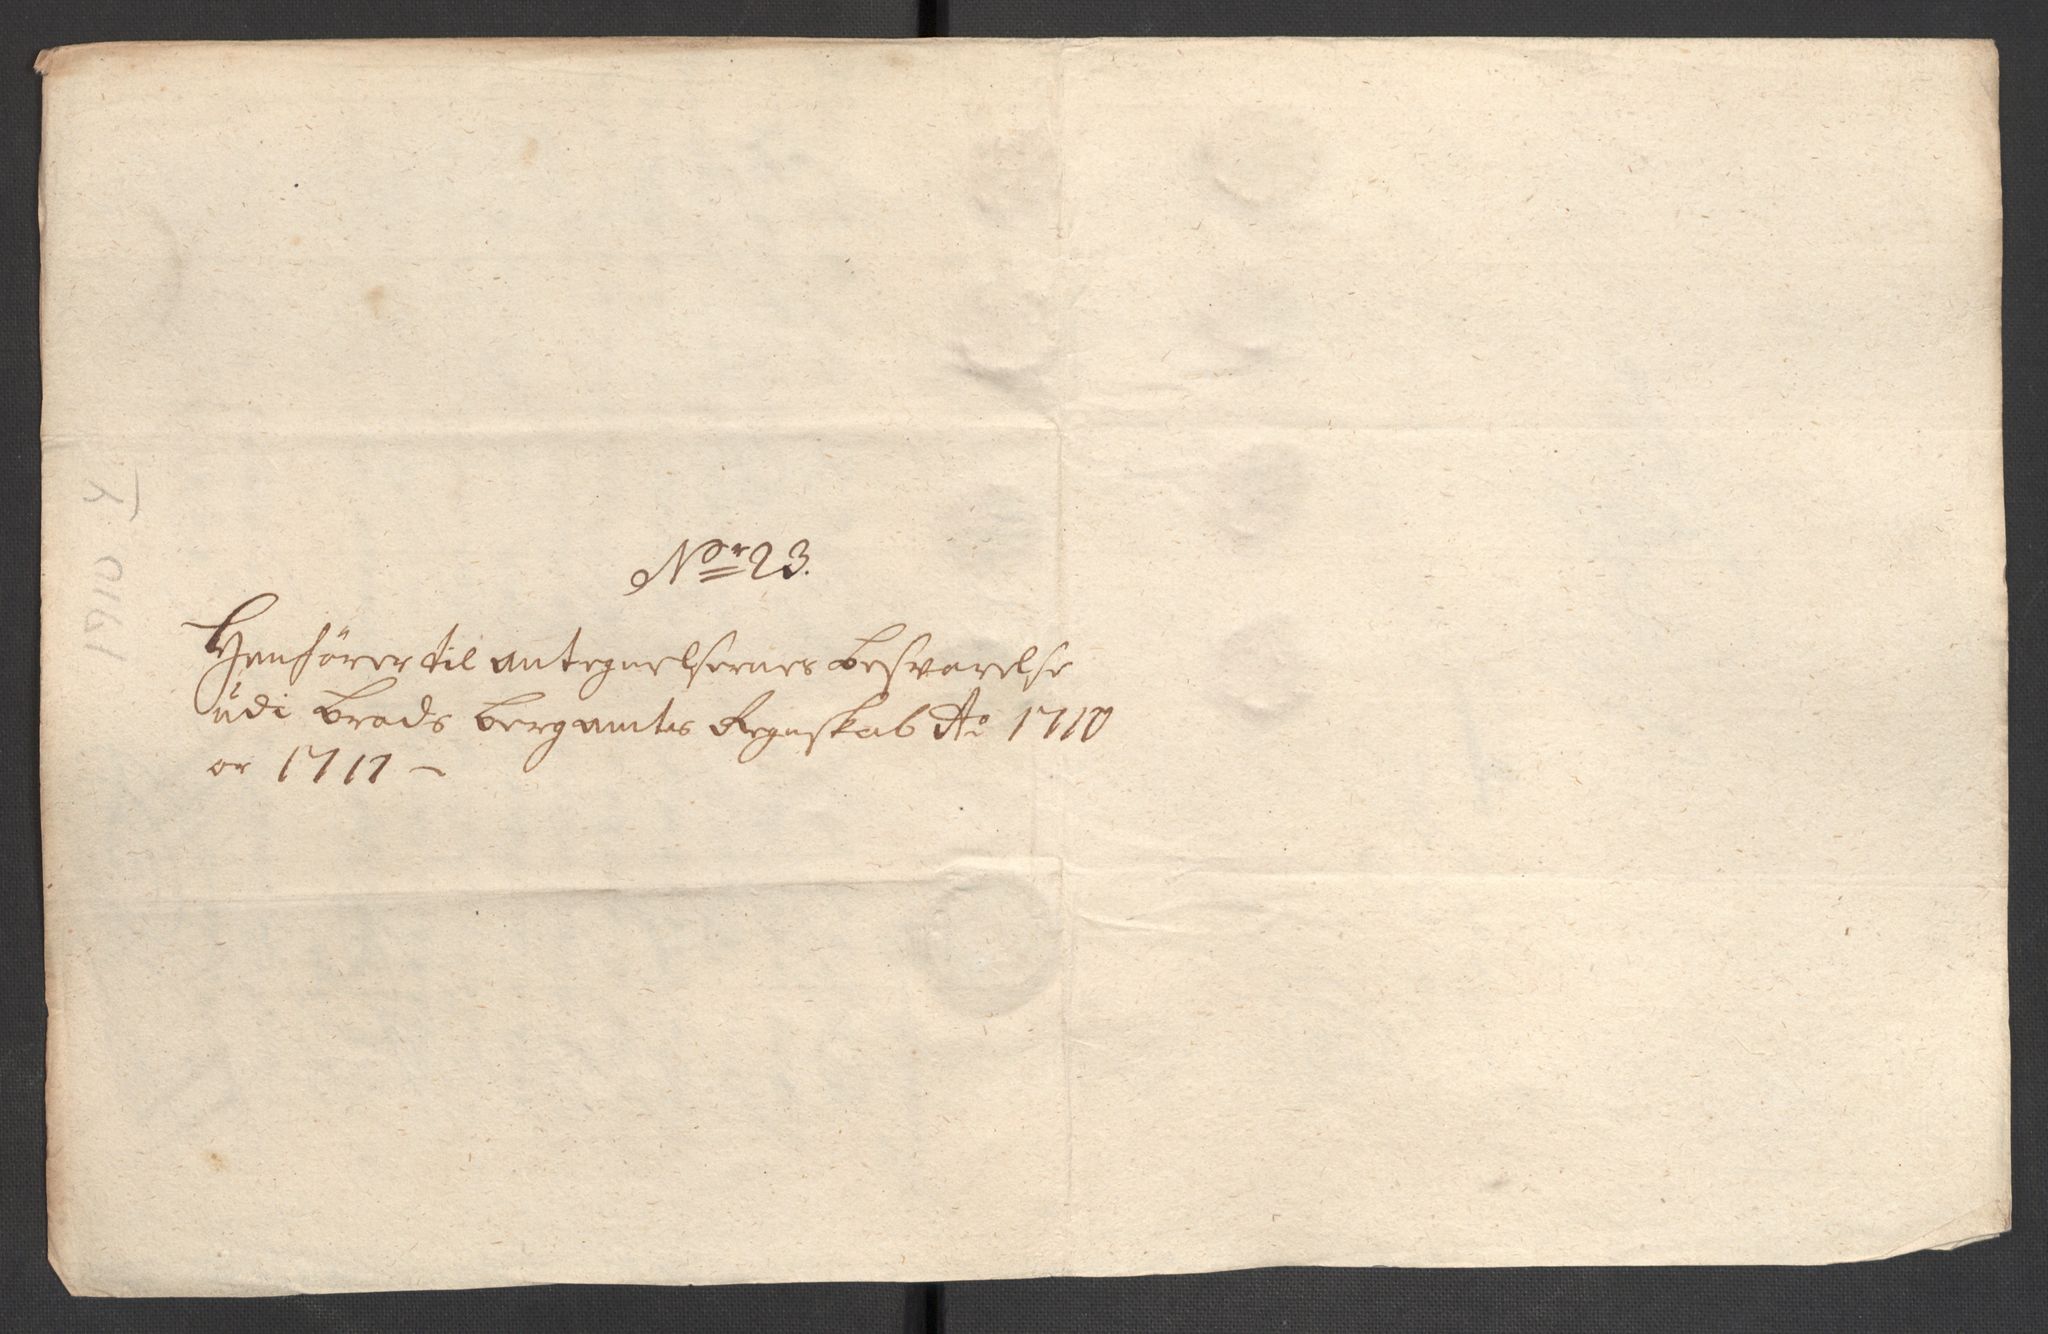 No 23.
Henhörer til antegnelsernes besvarelse
udi Brads berg amts Regnskab Ao 1710
or 1711 —
1710